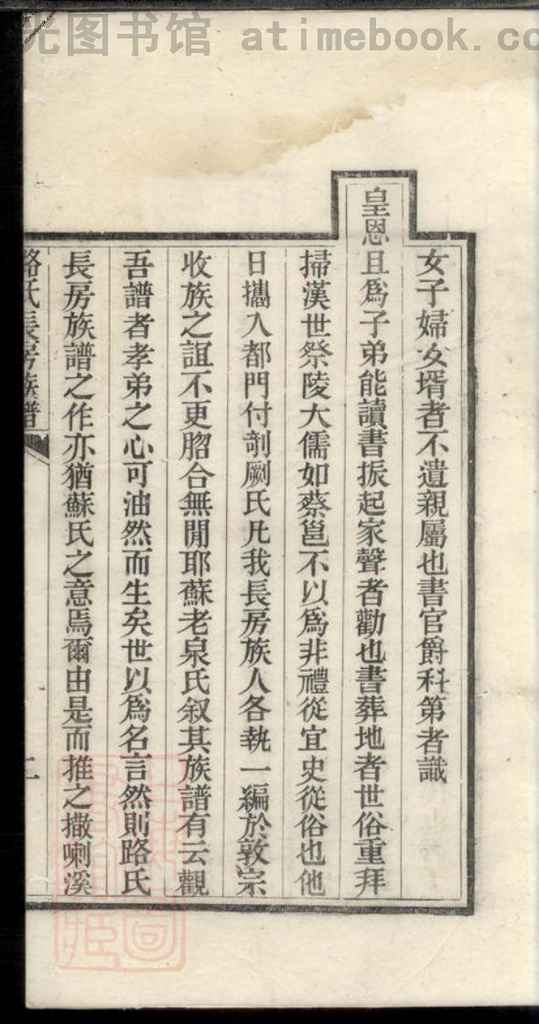 光图书馆 atimebook.co
女子婦女壻者不遺親屬也書官爵科第者識
皇恩且爲子弟能讀書振起家聲者勸也書葬地者世俗重拜
掃漢世祭陵大儒如蔡邕不以爲非禮從宜史從俗也他
日攜入都門付剞劂氏凡我長房族人各執一編於敦宗
收族之誼不更脗合無閒耶蘇老泉氏叙其族譜有云觀
吾譜者孝弟之心可油然而生矣世以爲名言然則路氏
長房族譜之作亦猶蘇氏之意焉爾由是而推之撒喇溪
路氏長房族譜
二